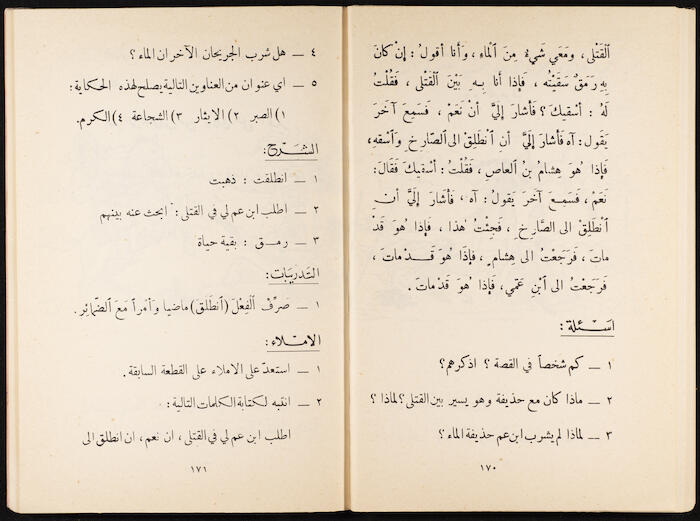 ٱلقَتْلى ، وَمَعي شَيءٌ مِنَ ٱلْماءِ ، وَأنا أقولُ : إنْ كانَ
بِهِ رَمَقٌ سَقَيْتُه ، فَإذا أنا بِـهِ بَيْنَ ٱلقَتْلى ، فَقُلْتُ
لَهُ : أسْقيكَ ؟ فَأشارَ إلَيَّ أنْ نَعَمْ ، فَسَمِعَ آخَرَ
يَقول : آه فَأشارَ إلَيَّ أنِ ٱنْطَلِقْ الى الصّارِخِ وَٱسْقِهِ،
فَإذا هُوَ هِشامُ بنُ العاصِ ، فَقُلْتُ : أسْقيكَ فَقالَ:
نَعَمْ ، فَسَمِعَ آخَرَ يَقولُ : آه ، فَأشارَ إلَيَّ أنِ
ٱنْطَلِقْ الى الصَّارِخِ ، فَجِئْتُ هٰذا ، فَإذا هُوَ قَدْ
ماتَ ، فَرَجَعْتُ الى هِشامٍ ، فَإذَا هُوَ قَـدْ ماتَ ،
فَرَجَعْتُ الى ٱبْنِ عَمّي ، فَإذا هُوَ قَدْ ماتَ .
اسَـئلة :
١ ــ كم شخصاً في القصة ؟ اذكرهم؟
٢ ــ ماذا كان مع حذيفة وهو يسير بين القتلى؟ لماذا ؟
٣ ــ لماذا لم يشرب ابن عم حذيفة الماء ؟
١٧٠
٤ ــ هل شرب الجريحان الآخران الماء ؟
٥ ــ اي عنوان من العناوين التالية يصلح لهذه الحكاية :
١) الصبر ٢) الايثار ٣) الشجاعة ٤) الكرم.
الشَـرْح :
١ ــ انطلقت : ذهبت
٢ ــ اطلب ابن عم لي في القتلى : ابحث عنه بينهم
٣ ــ رمـق : بقية حياة
التَدريبَات :
١ ــ صَرِّفْ الْفِعْلَ (ٱنْطَلَقَ) ماضيا وَأمْراً مَعَ الضَّمائِرِ .
الامْـلاء :
١ ــ استعدّ على الاملاء على القطعة السابقة .
٢ ــ انتبه لكتابة الكلمات التالية :
اطلب ابن عم لي في القتلى ، ان نعم ، ان انطلق الى
١٧١